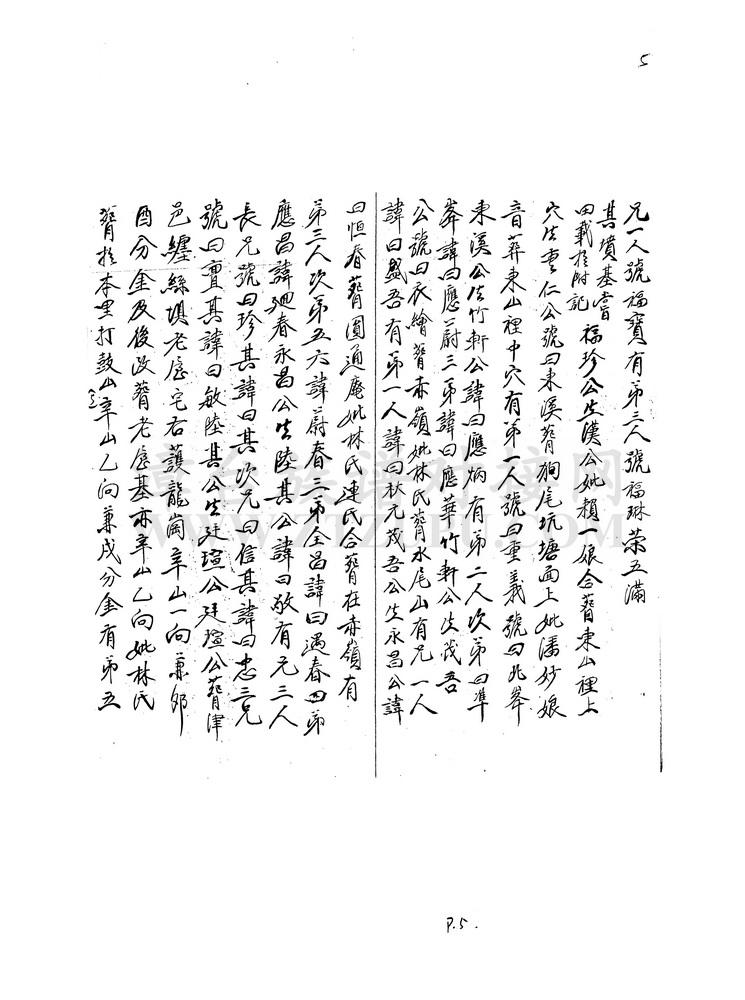 5
兄一人號福寶有第三人號福琳榮五滿
其墳基當
田載於附記
福珍公生漢公妣賴一娘合葬東山裡上
穴生重仁公號曰東溪葬狗尾坑塘面上妣潘妙娘
音葬東山裡中穴有第一人號曰重義號曰北峯
東溪公生竹軒公諱曰應炳有第二人次第曰準
峯諱曰應蔚三第諱曰應華竹軒公生茂吾
公號曰衣繪葬赤嶺妣林氏葬水尾山有兄一人
諱曰盛吾有第一人諱曰狀元茂吾公生永昌公諱
曰恒春葬圓通庵妣林氏連氏合葬在赤嶺有
第三人次第五六諱蔚春三第全昌諱曰遇春四第
應昌諱春永昌公生陸其公諱曰敬有元三人
長兄號曰珍其諱曰其次兄曰信其諱曰忠三兄
號曰寶其諱曰敏陸其公生廷瑄公廷瑄公葬津
邑纏絲埧老屋宅右護龍崗辛山一向兼卯
酉分金及後改葬老屋基亦辛山乙向妣林氏
葬於本里打鼓山辛山乙向兼戌分金有第五
章台族谱对接网
www.ztzupu.com
P.5.